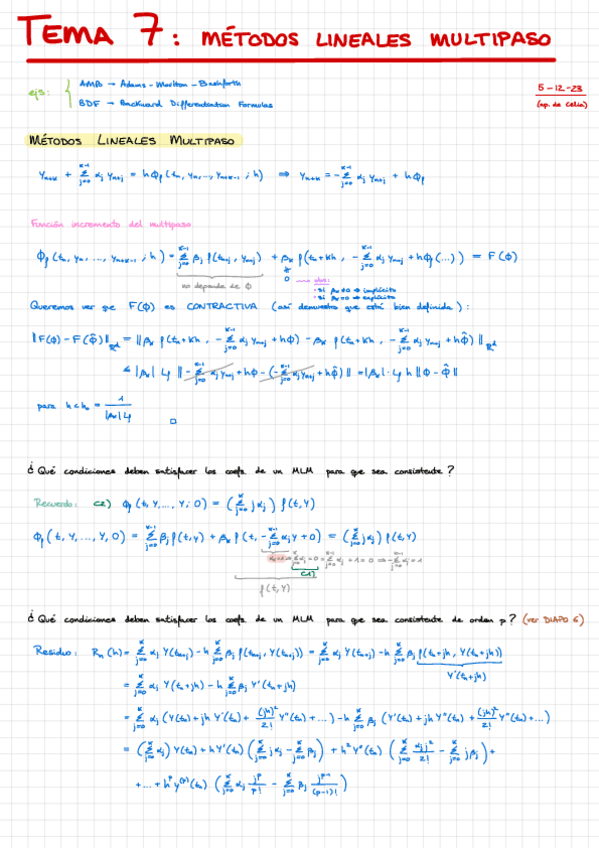 TEMA 7: MÉTODOS LINEALES MULTIPASO
ejs: { AMB → Adams-Moulton-Bashforth
BDF → Backward Differentiation Formulas
5-12-23
(ap. de Celia)
MÉTODOS LINEALES MULTIPASO
y_{n+k} + Σ_{j=0}^{k-1} α_j y_{n+j} = hϕ_f(t_n, y_n, ..., y_{n+k-1}; h) ⇒ y_{n+k} = -Σ_{j=0}^{k-1} α_j y_{n+j} + hϕ_f
Función incremento del multipaso
ϕ_f(t_n, y_n, ..., y_{n+k-1}; h) = Σ_{j=0}^{k-1} β_j f(t_{n+j}, y_{n+j}) + β_k f(t_n+kh, -Σ_{j=0}^{k-1} α_j y_{n+j} + hϕ_f(...)) = F(ϕ)
no depende de ϕ
≠ 0 → obs:
· si β_k ≠ 0 → implícito
· si β_k = 0 → explícito
Queremos ver que F(ϕ) es CONTRACTIVA (así demuestro que está bien definida):
‖F(ϕ) - F(ϕ̂)‖_{ℝ^d} = ‖β_k f(t_n+kh, -Σ_{j=0}^{k-1} α_j y_{n+j} + hϕ) - β_k f(t_n+kh, -Σ_{j=0}^{k-1} α_j y_{n+j} + hϕ̂)‖_{ℝ^d}
≤ |β_k| L_f ‖-Σ_{j=0}^{k-1} α_j y_{n+j} + hϕ - (-Σ_{j=0}^{k-1} α_j y_{n+j} + hϕ̂)‖ = |β_k| · L_f h ‖ϕ - ϕ̂‖
para h < h_0 = 1 / (|β_k| L_f) □
¿Qué condiciones deben satisfacer los coefs. de un MLM para que sea consistente?
Recuerdo: C2) ϕ_f(t, Y, ..., Y; 0) = (Σ_{j=0}^{k} j α_j) f(t, Y)
ϕ_f(t, Y, ..., Y, 0) = Σ_{j=0}^{k-1} β_j f(t, Y) + β_k f(t, -Σ_{j=0}^{k-1} α_j Y + 0) = (Σ_{j=0}^{k} j α_j) f(t, Y)
α_k=1 ⇒ Σ_{j=0}^{k} α_j = 0 = Σ_{j=0}^{k-1} α_j + 1 = 0 ⇒ -Σ_{j=0}^{k-1} α_j = 1
C1)
f(t, Y)
¿Qué condiciones deben satisfacer los coefs. de un MLM para que sea consistente de orden p? (ver DIAPO 6)
Residuo: R_n(h) = Σ_{j=0}^{k} α_j Y(t_{n+j}) - h Σ_{j=0}^{k} β_j f(t_{n+j}, Y(t_{n+j})) = Σ_{j=0}^{k} α_j Y(t_{n+j}) - h Σ_{j=0}^{k} β_j f(t_n+jh, Y(t_n+jh))
Y'(t_n+jh)
= Σ_{j=0}^{k} α_j Y(t_n+jh) - h Σ_{j=0}^{k} β_j Y'(t_n+jh)
= Σ_{j=0}^{k} α_j (Y(t_n) + jh Y'(t_n) + (jh)²/2! Y''(t_n) + ...) - h Σ_{j=0}^{k} β_j (Y'(t_n) + jh Y''(t_n) + (jh)²/2! Y'''(t_n) + ...)
= (Σ_{j=0}^{k} α_j) Y(t_n) + h Y'(t_n) (Σ_{j=0}^{k} j α_j - Σ_{j=0}^{k} β_j) + h² Y''(t_n) (Σ_{j=0}^{k} α_j j²/2! - Σ_{j=0}^{k} j β_j) +
+ ... + h^p y^{(p)}(t_n) (Σ_{j=0}^{k} α_j j^p/p! - Σ_{j=0}^{k} β_j j^{p-1}/(p-1)!)